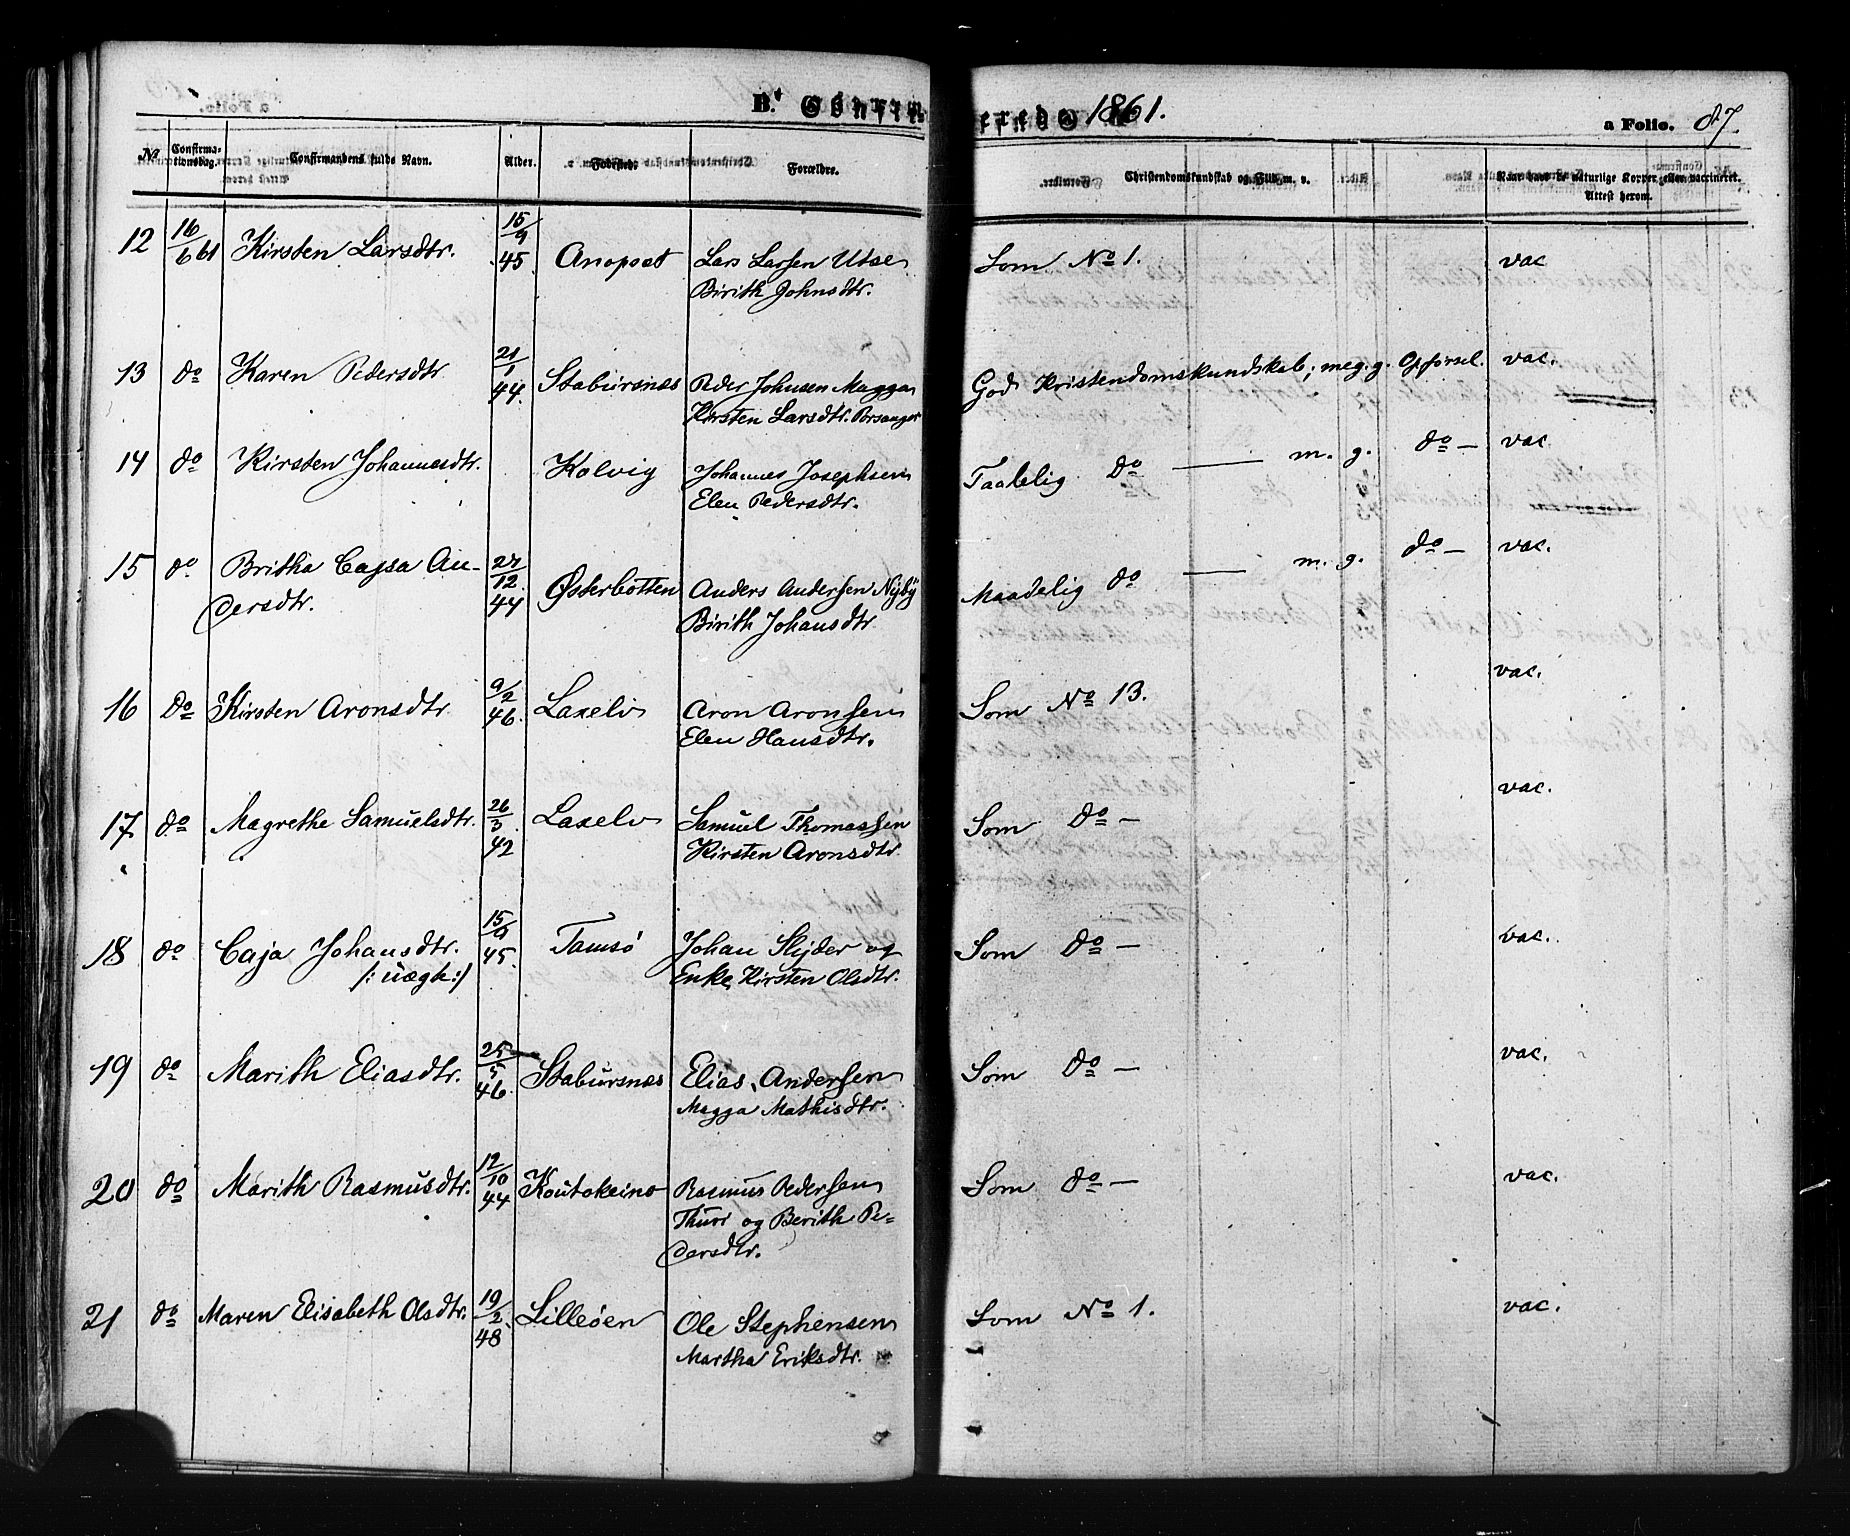 B. Confirmerede 1861. a Folio. 87.
No Confirma-tionsdag. Confirmandens fulde Navn. Alder. Fødested. Forældre. Christendomskundskab og Flid m. v. Naar have de naturlige Kopper eller vaccineret. Attest herom.
12 16/6 61 Kirsten Larsdtr. 15/9 45 Anopset Lars Larsen Utse Som No 1. vac
Birith Johnsdtr.
13 do Karen Pedersdtr 21/1 44. Stabursnæs Peder Johnsen Magga God Kristendomskundskab; meg. g. Opførsel. vac.
Kirsten Larsdtr. Porsanger
14 do Kirsten Johannesdtr. Kolvig Johannes Josephsen Taalelig do — m. g. do — vac
Elen Pedersdtr.
15 do Britha Cajsa An- 27/12 44 Østerbotten Anders Andersen Nyby Maadelig do — m. g. do — vac.
dersdtr. Birith Johansdtr
16 Do Kirsten Aronsdtr 9/2 46. Laxelv Aron Aronsen Som No 13. vac.
Elen Hansdtr.
17 do Magrethe Samuelsdtr. 26/3 42 Laxelv Samuel Thomassen Som do — vac.
Kirsten Aronsdtr.
18 do Caja Johansdtr. 15/9 45. Tamsø Johan Slyder og Som do — vac.
/: uægt:/ Enke Kirsten Olsdtr.
19 do Marith Eliasdtr. 25/5 46 Stabursnæs Elias Andersen Som do — vac.
Magga Mathisdtr.
20 do Marith Rasmusdtr. 12/10 44 Koutokeino Rasmus Pedersen Som do — vac.
Thuri og Berith Pe-
dersdtr.
21 do Maren Elisabeth Olsdtr. 19/2 48 Lilleøen Ole Stephensen Som No 1. vac.
Martha Eriksdtr.